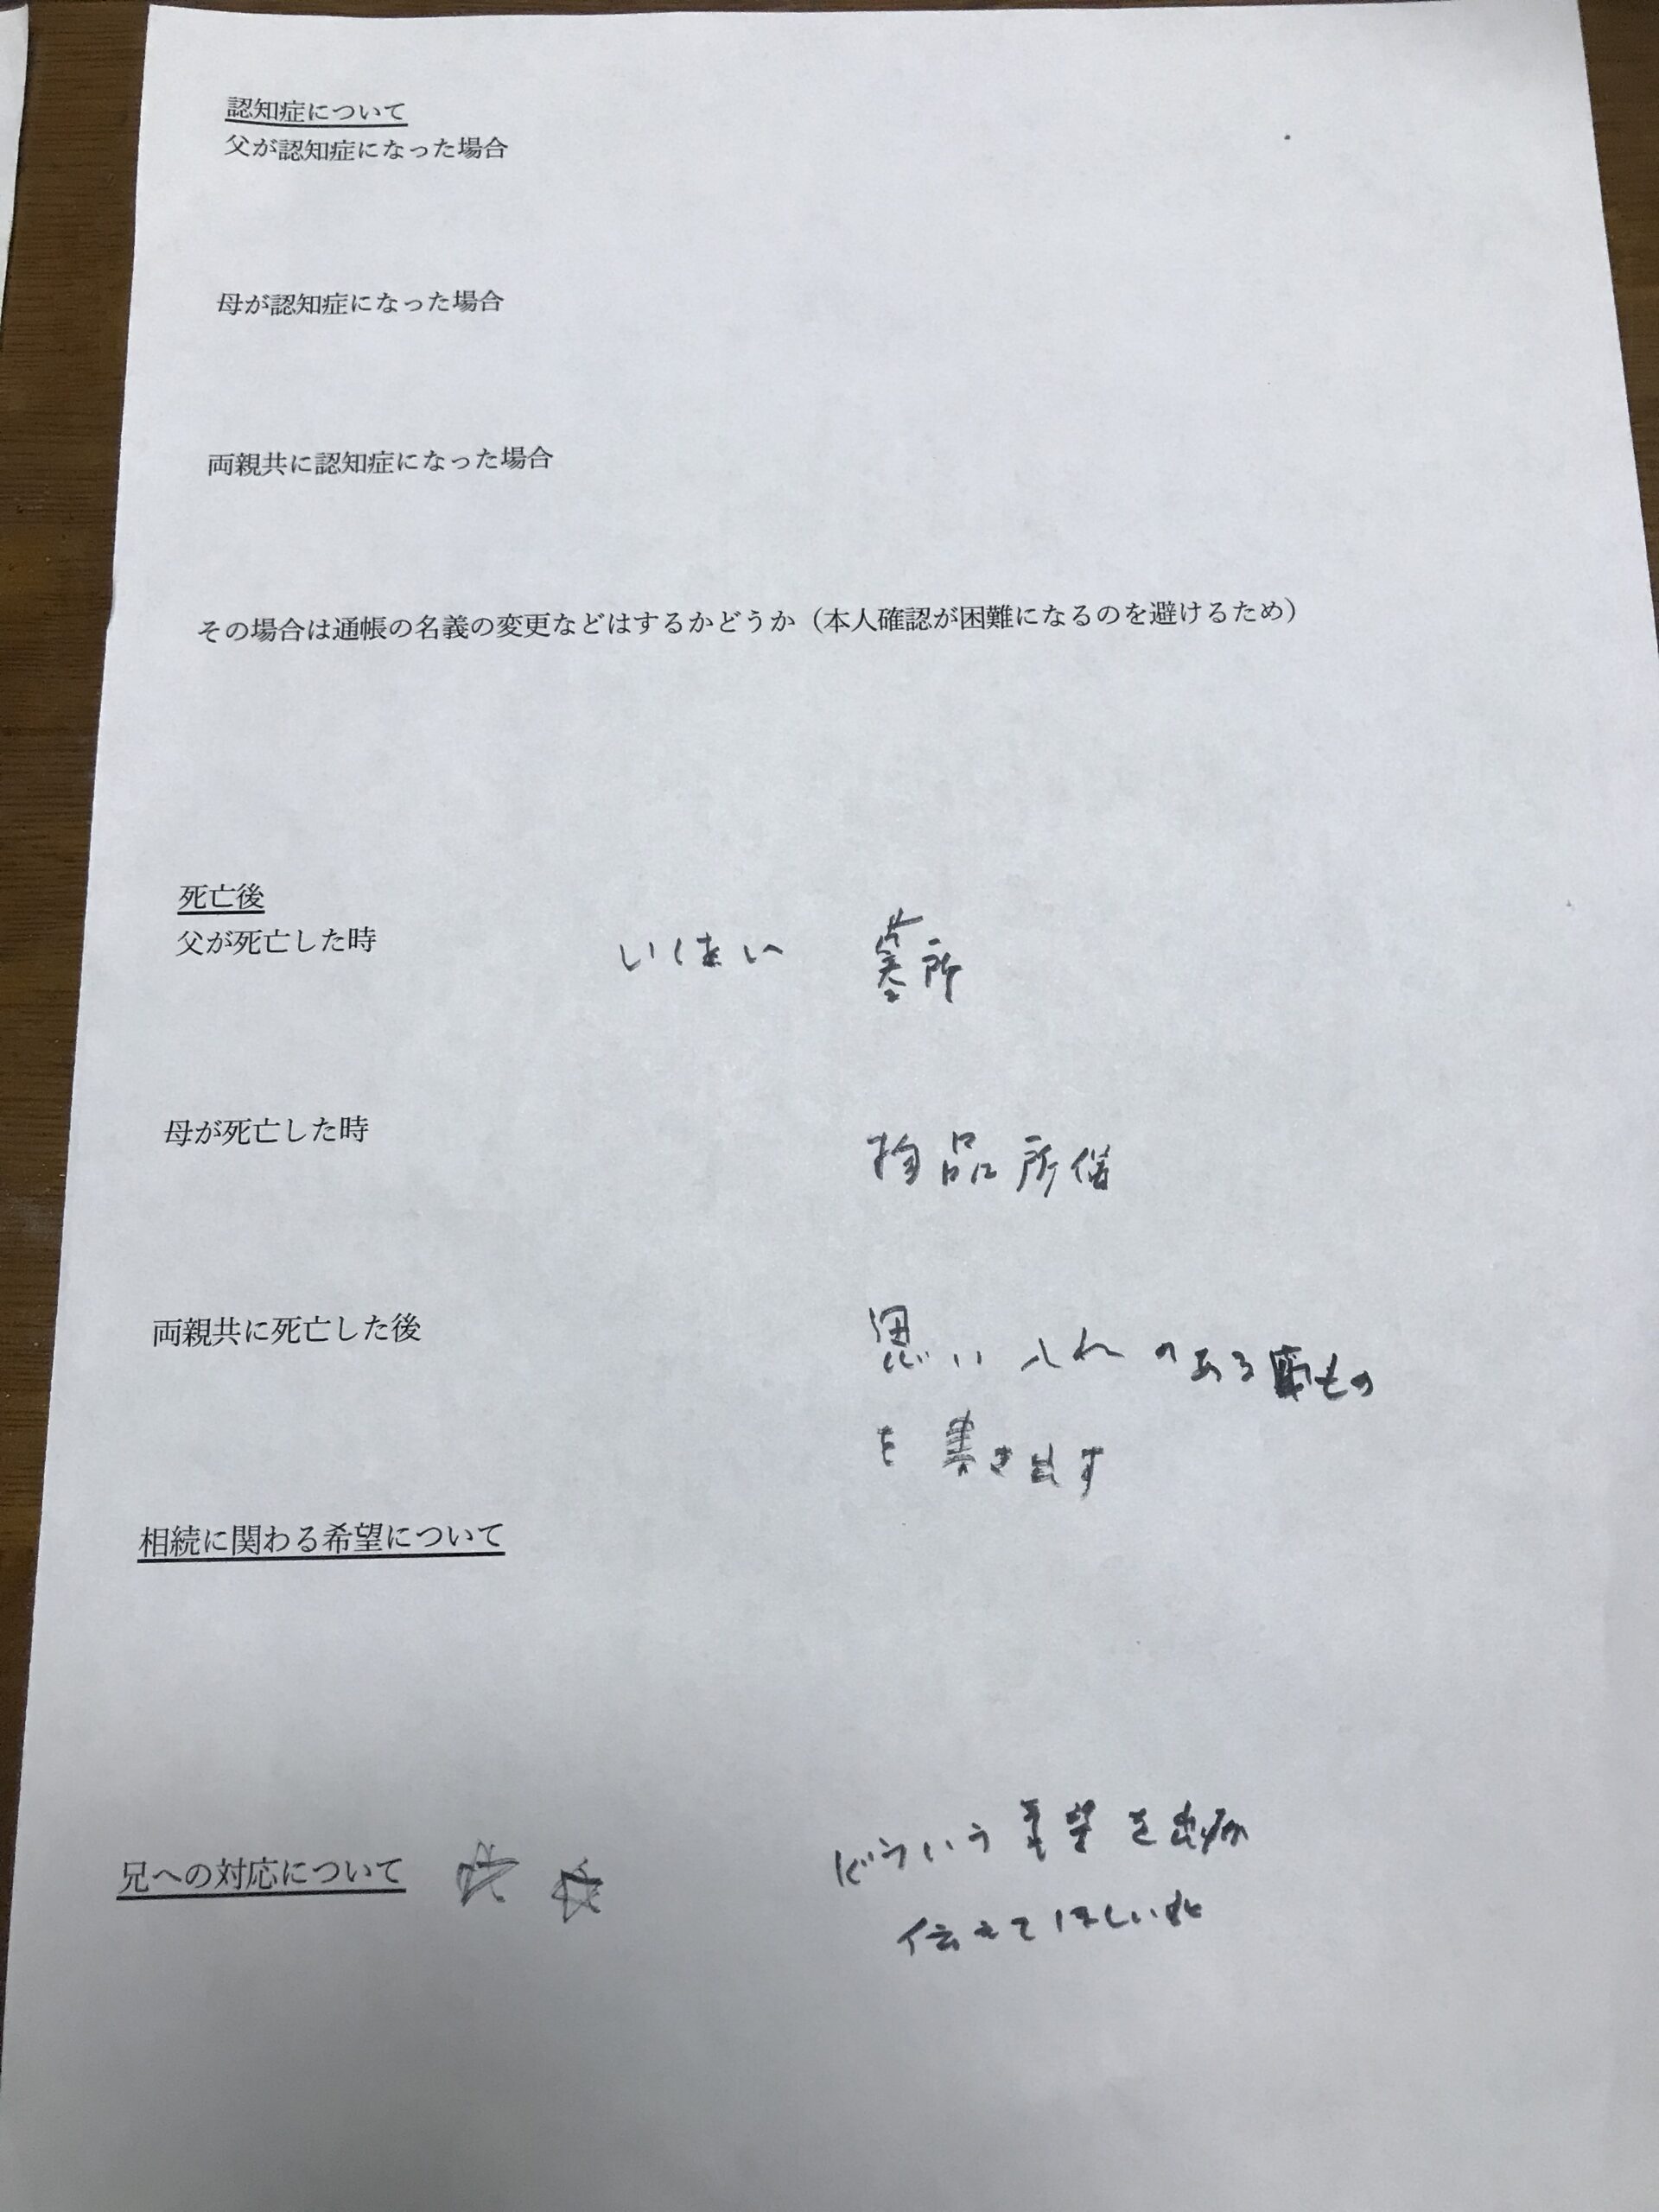 認知症について
父が認知症になった場合
母が認知症になった場合
両親共に認知症になった場合
その場合は通帳の名義の変更などはするかどうか（本人確認が困難になるのを避けるため）
死亡後
父が死亡した時 いはい 墓所
母が死亡した時 物品所
両親共に死亡した後 思い入れのあるもの
を書き出す
相続に関わる希望について
どういう要望を出すか
兄への対応について ☆ ☆
伝えてほしいか